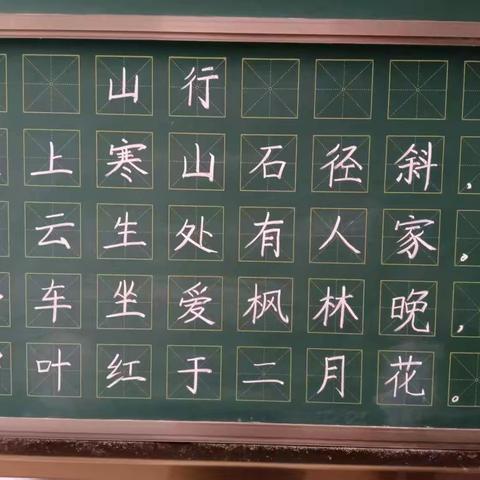 山行
上寒山石径斜，
云生处有人家。
车坐爱枫林晚，
叶红于二月花。